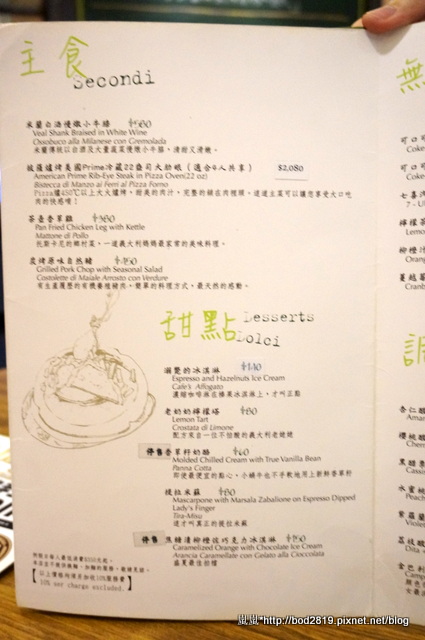 主食
Secondi
米蘭白酒慢燉小牛膝
Veal Shank Braised in White Wine
Ossobuco alla Milanese con Gremolada
披薩爐烤美國Prime冷藏22盎司大肋眼（適合4人共享） $2,080
American Prime Rib-Eye Steak in Pizza Oven(22 oz)
Bistecca di Manzo ai Ferri al Pizza Forno
肉的快感唷！
茶壺香草雞
Pan Fried Chicken Leg with Kettle
Mattone di Pollo
托斯卡尼的鄉村菜，一道義利媽媽最家常的美味料理。
炭烤原味自然豬
Grilled Pork Chop with Seasonal Salad
Costolette di Maiale Arrosto con Verdure
有生產履歷的有機養殖豬肉，簡單的料理方式，最天然的感動。
甜點
Desserts
Dolci
溺斃的冰淇淋 $140
Espresso and Hazelnuts Ice Cream
Cafe's Affogato
濃縮咖啡淋在榛果冰淇淋上，才叫正點
老奶奶檸檬塔
Lemon Tart
Crostata di Limone
配方來自一位不怕酸的義大利老婊婊
停售 香草籽奶酪
Molded Chilled Cream with True Vanilla Bean
Panna Cotta
提拉米蘇
Mascarpone with Marsala Zabalione on Espresso Dipped
Lady's Finger
Tira-Misu
這才叫真正的提拉米蘇
停售 焦糖漬柳橙佐巧克力冰淇淋
Caramelized Orange with Chocolate Ice Cream
Arancia Caramellate con Gelato alla Cioccolata
盛夏最佳拉檔
【以上價格均須另加收10%服務費
10% ser charge excluded.】
無
可口可
Coke
可口可
Coke
七喜汽
7 - U
檸檬茶
Lemon
柳橙汁
Orang
蔓越莓
Cranb
調
杏仁酸
Amar
櫻桃酸
Cherr
黑醋栗
Cassi
水蜜桃
Peach
紫羅蘭
Violet
荔枝酸
Dita
金巴利
Camp
黒黒*http://bod2819.pixnet.net/blog